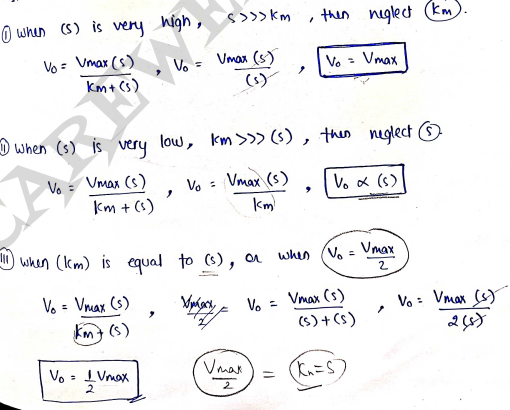 ① when (s) is very high, s>>>km, then neglect (km).
Vo = Vmax (s) / km + (s) , Vo = Vmax (s) / (s) , Vo = Vmax
② when (s) is very low, km>>>(s), then neglect (s).
Vo = Vmax (s) / km + (s) , Vo = Vmax (s) / km , Vo ∝ (s)
③ when (km) is equal to (s), or when Vo = Vmax / 2
Vo = Vmax (s) / km + (s) , Vmax / 2 = Vo = Vmax (s) / (s) + (s) , Vo = Vmax (s) / 2 (s)
Vo = 1/2 Vmax Vmax / 2 = Km = S
CAREWE